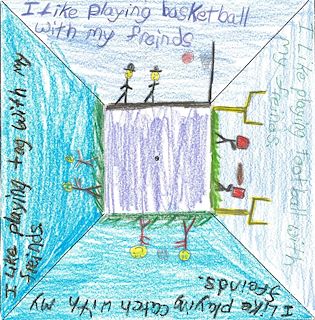 I Like playing basketball
with my freinds
I Like playing football with
my freinds
I Like playing catch with my
freinds.
I Like playing tag with my